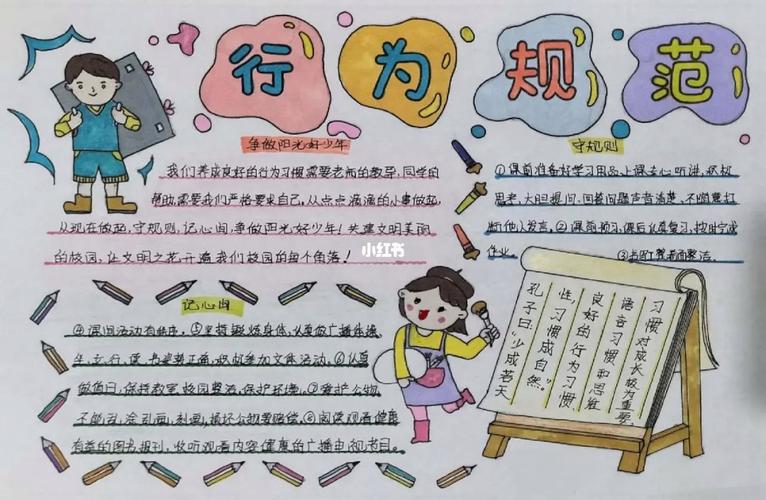 行为规范
争做阳光好少年
我们养成良好的行为习惯需要老师的教导,同学的
帮助,需要我们严格要求自己,从点点滴滴的小事做起,
从现在做起,守规则,记心间,争做阳光好少年!共建文明美丽
的校园,让文明之花开遍我们校园的每个角落!
守规则
①课前准备好学习用品,上课专心听讲,积极
思考,大胆提问,回答问题声音清楚,不随意打
断他人发言。②课前预习,课后认真复习,按时完成
作业。③
小红书
记心间
④课间活动有秩序。⑤坚持锻炼身体,认真做广播体操
积极参加文体活动。⑥认真
做值日,保持教室、校园整洁,保护环境。⑦爱护公物,
不乱刻,涂,画,损坏公物要赔偿。⑧阅读观看健康
有益的图书报刊,收听观看内容健康的广播电视节目。
孔子曰:"少成若天
性,习惯成自然。
良好的行为习惯
语言习惯和思维
习惯对成长极为重要。